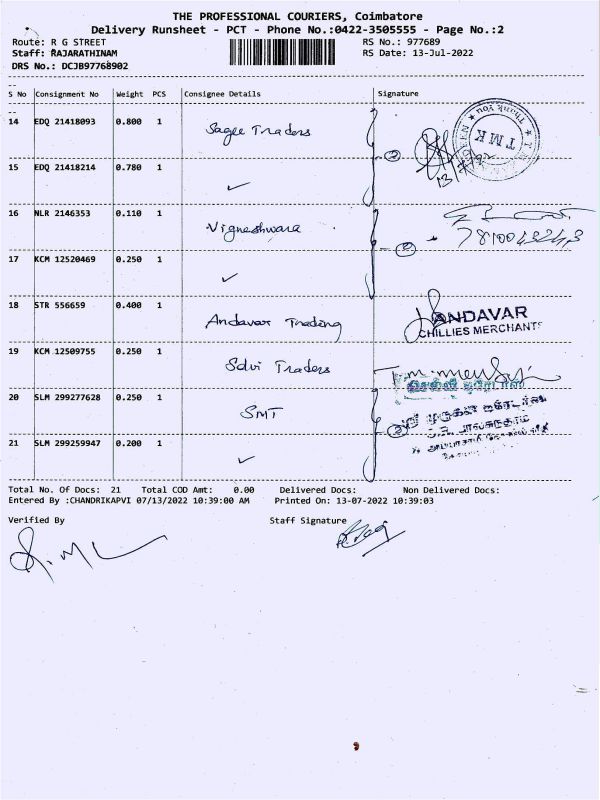 THE PROFESSIONAL COURIERS, Coimbatore
Delivery Runsheet - PCT - Phone No.:0422-3505555 - Page No.:2
Route: R G STREET RS No.: 977689
Staff: RAJARATHINAM RS Date: 13-Jul-2022
DRS No.: DCJB97768902
S No Consignment No Weight PCS Consignee Details Signature
14 EDQ 21418093 0.800 1 Sagee Traders
Thank You
T M K
15 EDQ 21418214 0.780 1 ✓ 2
16 NLR 2146353 0.110 1 Vigneshwara
17 KCM 12520469 0.250 1 ✓ 2
18 STR 556659 0.400 1 Andavar Trading
ANDAVAR
CHILLIES MERCHANTS
19 KCM 12509755 0.250 1 Selvi Traders
20 SLM 299277628 0.250 1 SMT
ஸ்ரீ முருகன் டிரேடர்ஸ்
21 SLM 299259947 0.200 1 ✓ 2
Total No. Of Docs: 21 Total COD Amt: 0.00 Delivered Docs: Non Delivered Docs:
Entered By :CHANDRIKAPVI 07/13/2022 10:39:00 AM Printed On: 13-07-2022 10:39:03
Verified By Staff Signature